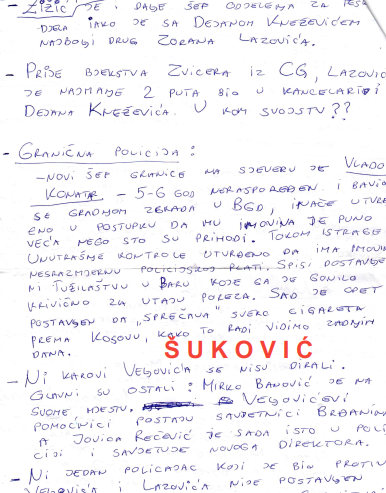 - ZIŽIĆ JE I DALJE ŠEF ODJELJENJA ZA
DJELA IAKO JE SA DEJANOM KNEŽEVIĆEM
NAJBOLJI DRUG ZORANA LAZOVIĆA.
- PRIJE BJEKSTVA ZVICERA IZ CG, LAZOVIĆ
JE NAJMANJE 2 PUTA BIO U KANCELARIJI
DEJANA KNEŽEVIĆA. U KOM SVOJSTVU??
- GRANIČNA POLICIJA:
- NOVI ŠEF GRANICE NA SJEVERU JE VLADO
KONATAR - 5-6 GOD NERASPOREĐEN. I BAVIO
SE GRADNJOM ZGRADA U BGD, INAČE UTVRĐ
ENO U POSTUPKU DA MU IMOVINA JE PUNO
VEĆA NEGO ŠTO SU PRIHODI. TOKOM ISTRAGE
UNUTRAŠNJE KONTROLE UTVRĐENO DA IMA IMOVINU
NESRAZMJERNU POLICIJSKOJ PLATI. SPISI DOSTAVLJE
NI TUŽILAŠTVU U BARU KOJE GA JE GONILO
KRIVIČNO ZA UTAJU POREZA. SAD JE OPET
POSTAVLJEN DA „SPREČAVA" ŠVERC CIGARETA
PREMA KOSOVU, KAKO TO RADI VIDIMO ZADNJIH
DANA.
ŠUKOVIĆ
- NI KAROVI VELJOVIĆA SE NISU DIRALI.
GLAVNI SU OSTALI: MIRKO BANOVIĆ JE NA
SVOME MJESTU. VELJOVIĆEVI
POMOĆNICI POSTAJU SAVJETNICI BRĐANINA
A JOVICA REČEVIĆ JE SADA ISTO U POLI
CIJI I SAVJETUJE NOVOGA DIREKTORA.
- NI JEDAN POLICAJAC KOJI JE BIO PROTIV
VELJOVIĆA I LAZOVIĆA NIJE POSTAVLJEN